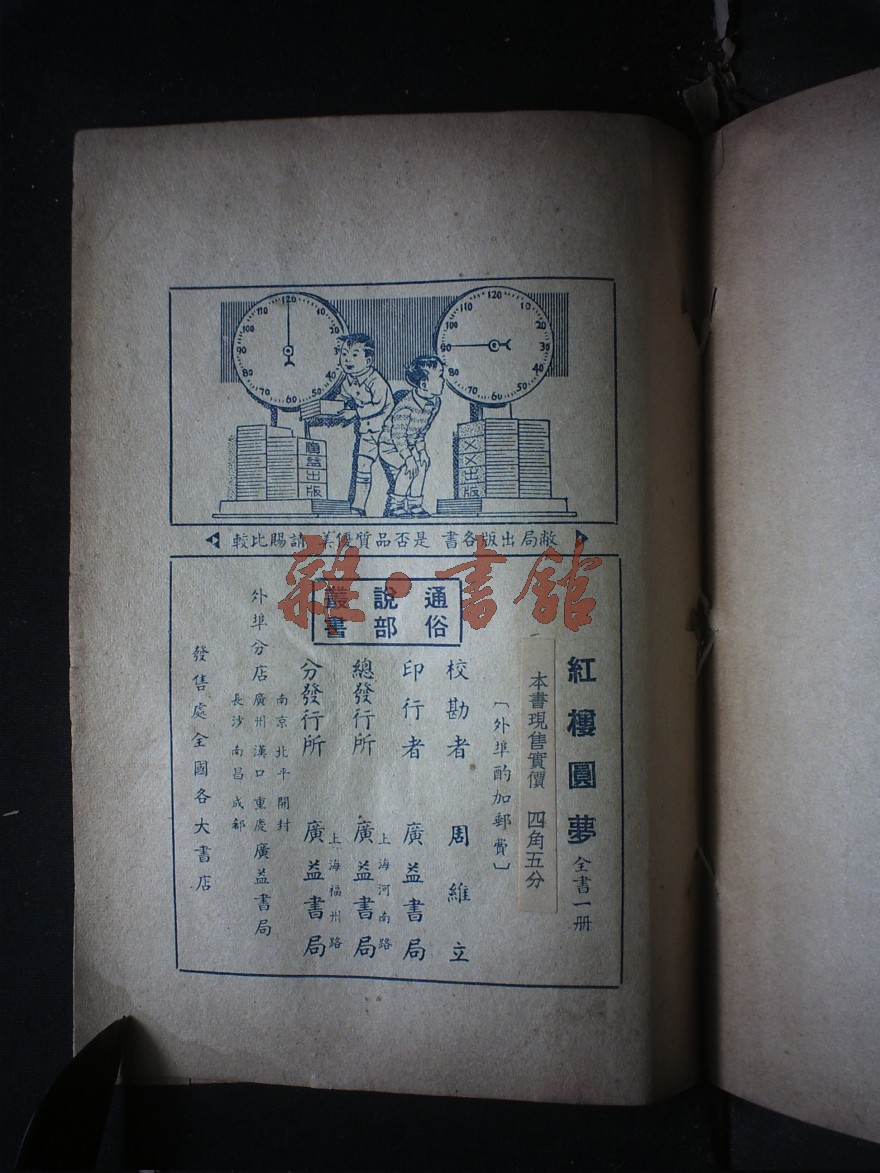 120
10
20
30
40
50
60
70
80
90
100
110
120
10
20
30
40
50
60
70
80
90
100
110
廣益出版
××出版
敝局出版各書 是否品質優美 請賜比較
雜·書館
通俗
說部
叢書
紅樓圓夢 全書一冊
本書現售實價 四角五分
〔外埠酌加郵費〕
校勘者 周維立
印行者 廣益書局
總發行所 上海河南路 廣益書局
分發行所 上海福州路 廣益書局
外埠分店
南京 北平 開封
廣州 漢口 重慶 廣益書局
長沙 南昌 成都
發售處全國各大書店